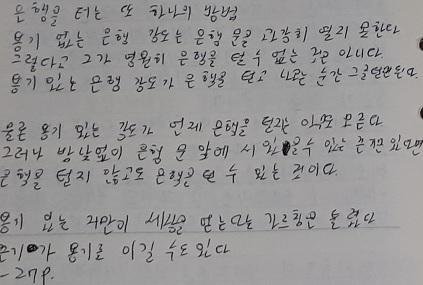 은행을 터는 또 하나의 방법
용기 없는 은행 강도는 은행 문을 과감히 열지 못한다
그렇다고 그가 영원히 은행을 털 수 없는 것은 아니다.
용기 있는 은행 강도가 은행을 털고 나오는 순간 그를 털면 된다.
물론 용기 있는 강도가 언제 은행을 털지는 아무도 모른다
그러나 밤낮없이 은행 문 앞에 서 있을 수 있는 끈기만 있다면
은행을 털지 않고도 은행을 털 수 있는 것이다.
용기 있는 자만이 세상을 얻는다는 가르침은 틀렸다
끈기가 용기를 이길 수도 있다
-27p.